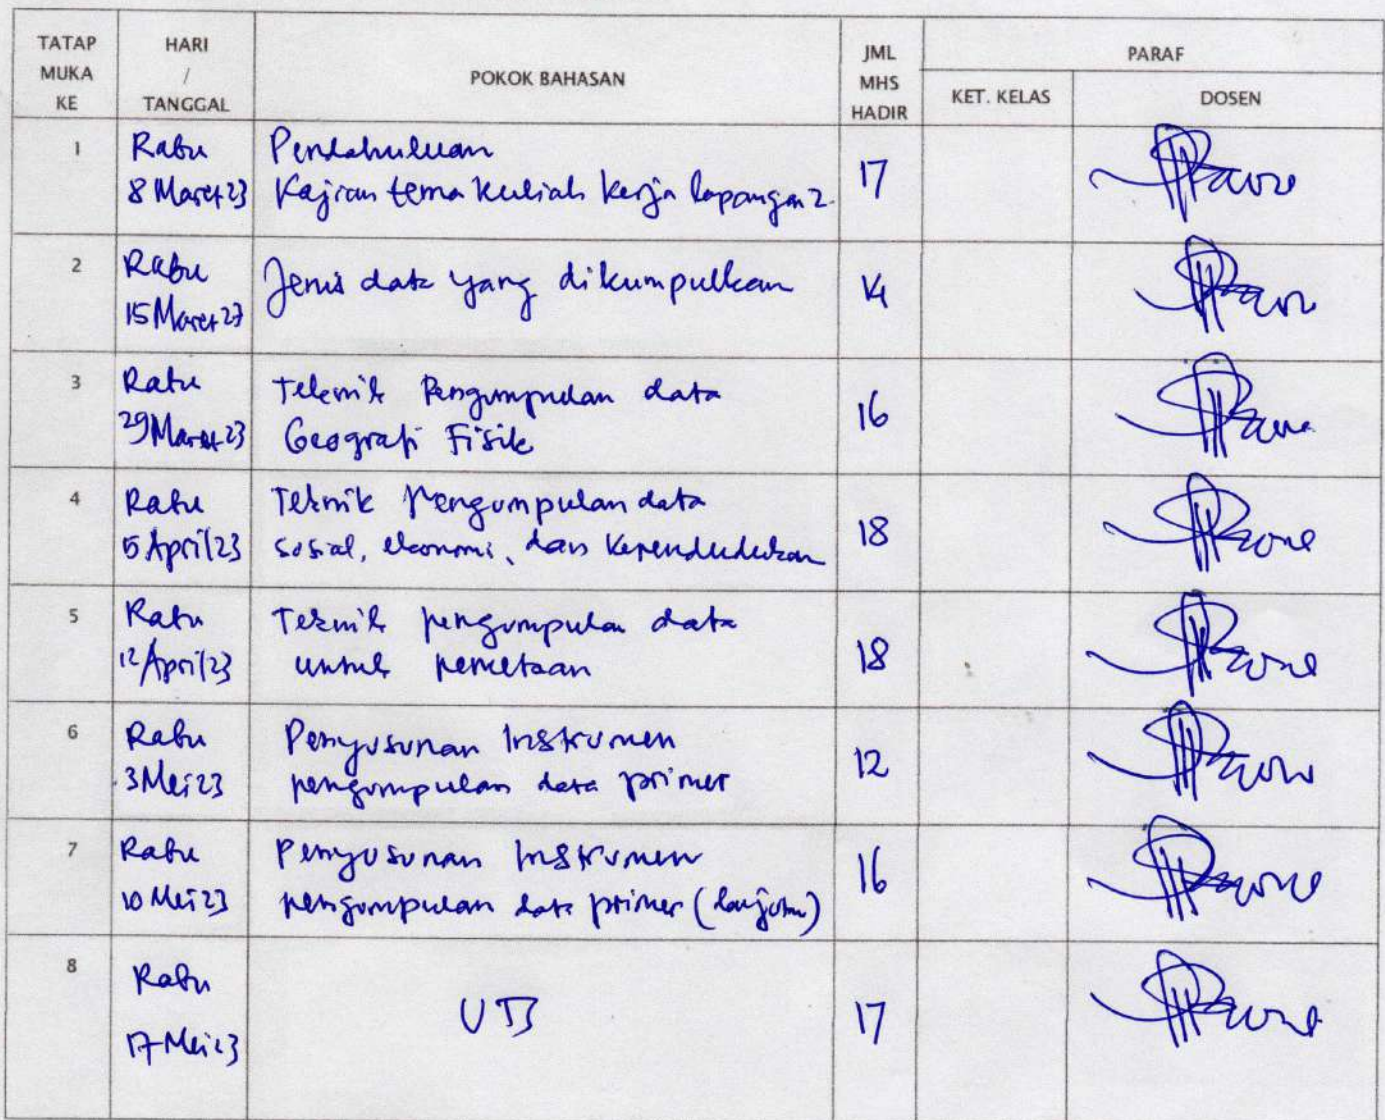 TATAP MUKA KE
HARI / TANGGAL
POKOK BAHASAN
JML MHS HADIR
PARAF
KET. KELAS
DOSEN
1
Rabu
8 Maret 23
Pendahuluan
Kajian tema kuliah kerja lapangan 2
17
2
Rabu
15 Maret 23
Jenis data yang dikumpulkan
14
3
Rabu
29 Maret 23
Teknik Pengumpulan data
Geografi Fisik
16
4
Rabu
5 April 23
Teknik Pengumpulan data
sosial, ekonomi, dan Kependudukan
18
5
Rabu
12 April 23
Teknik pengumpulan data
untuk pemetaan
18
6
Rabu
3 Mei 23
Penyusunan Instrumen
pengumpulan data primer
12
7
Rabu
10 Mei 23
Penyusunan Instrumen
pengumpulan data primer (lanjutan)
16
8
Rabu
17 Mei 23
UTS
17